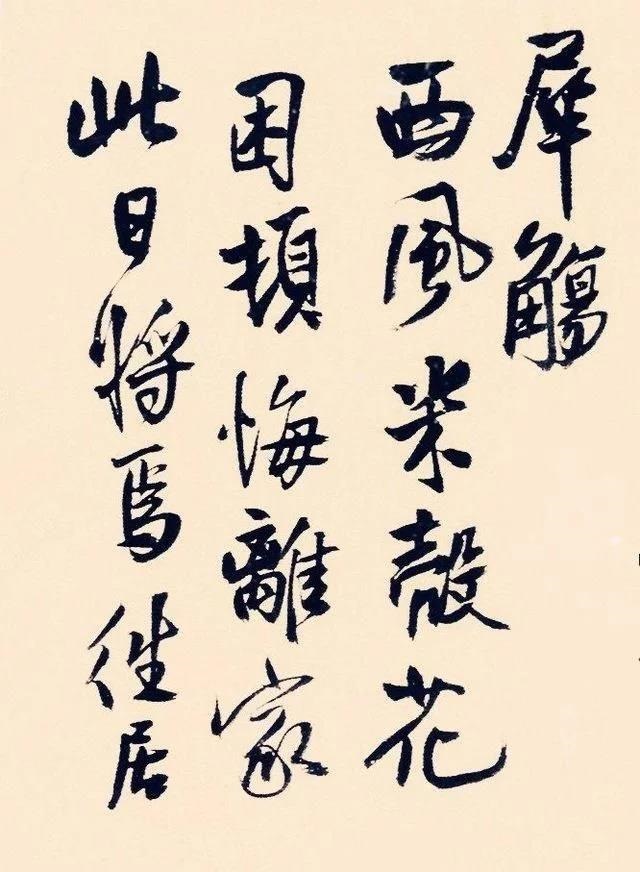 犀觴
西風米殼花
困頓悔離家
此日將焉往居